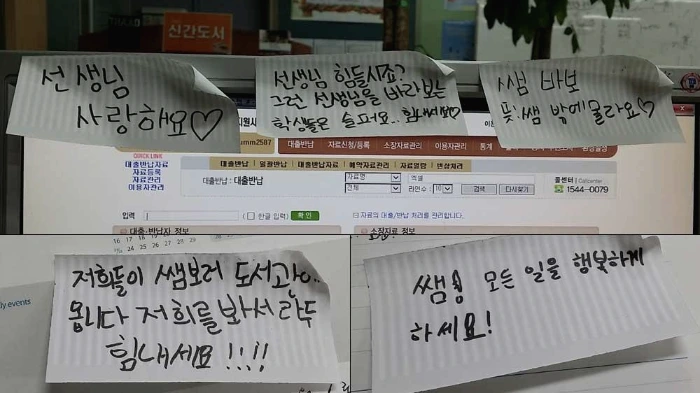 신간도서
선생님
사랑해요♡
선생님 힘들시죠?
그런 선생님을 바라보는
학생들은 슬퍼요.. 힘내세요♡
쌤 바보
풋; 쌤 밖에 몰라요♡
대출반납 자료신청/등록 소장자료관리 이용자관리 통계
QUICK LINK
대출반납자료
자료등록
자료관리
이용자관리
대출반납 일괄반납 대출반납자료 예약자료관리 자료열람 반상처리
대출반납 : 대출반납
자료명
전체
엑셀
라인수 : 10
검색
다시찾기
콜센터 Callcenter
1544-0079
입력
한글 입력
확인
자료의 대출/반납 처리를 관리합니다.
대출·반납자 정보
소장자료 정보
16 17 18 19 20 21 22
24 25 26 27 28 29
ly events
저희들이 쌤보러 도서관..
옵니다 저희를 봐서라두
힘내세요 !!!!
쌤 모든 일을 행복하게
하세요!